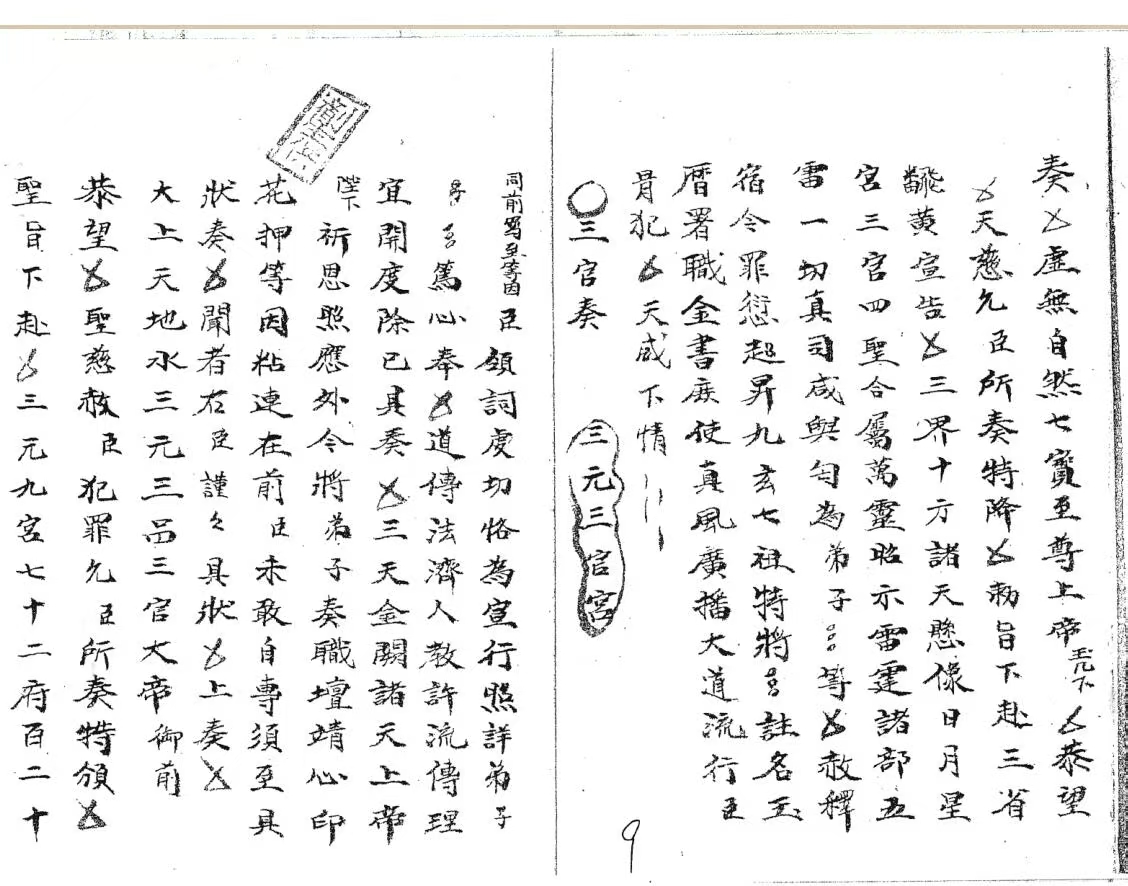 奏 虛無自然七寶至尊上帝玉几下 恭望
天慈允臣所奏特降 勅旨下赴三省
飜黃宣告 三界十方諸天懸像日月星
宮三官四聖合屬萬靈昭示雷霆諸部五
雷一切真司咸與勾為弟子 等 赦釋
宿令罪愆超昇九玄七祖特將 註名玉
曆署職金書庶使真風廣播大道流行臣
骨犯 天威下情
〇三官奏 三元三官宮
9
同前寫至等因臣領詞虔切恪為宣行照詳弟子
篤心奉 道傳法濟人教許流傳理
宜開度除已具奏 三天金闕諸天上帝
陛下祈恩照應外今將弟子奏職壇靖心印
花押等因粘連在前臣未敢自專須至具
狀奏 聞者右臣謹々具狀 上奏
大上天地水三元三品三官大帝御前
恭望 聖慈赦臣犯罪允臣所奏特頒
聖旨下赴 三元九宮七十二府百二十